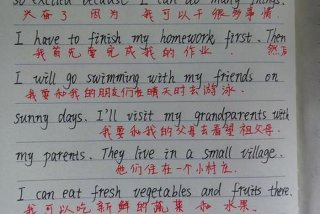 so excited because I can do many things.
兴奋了 因为 我可以干很多事情.
I have to finish my homework first. Then
我首先要完成我的作业. 然后
I will go swimming with my friends on
我要和我的朋友们在晴天时去游泳.
sunny days. I'll visit my grandparents with
我要和我的父母去看望祖父母.
my parents. They live in a small village.
他们住在一个小村庄.
I can eat fresh vegetables and fruits there.
我可以吃新鲜的蔬菜和水果.